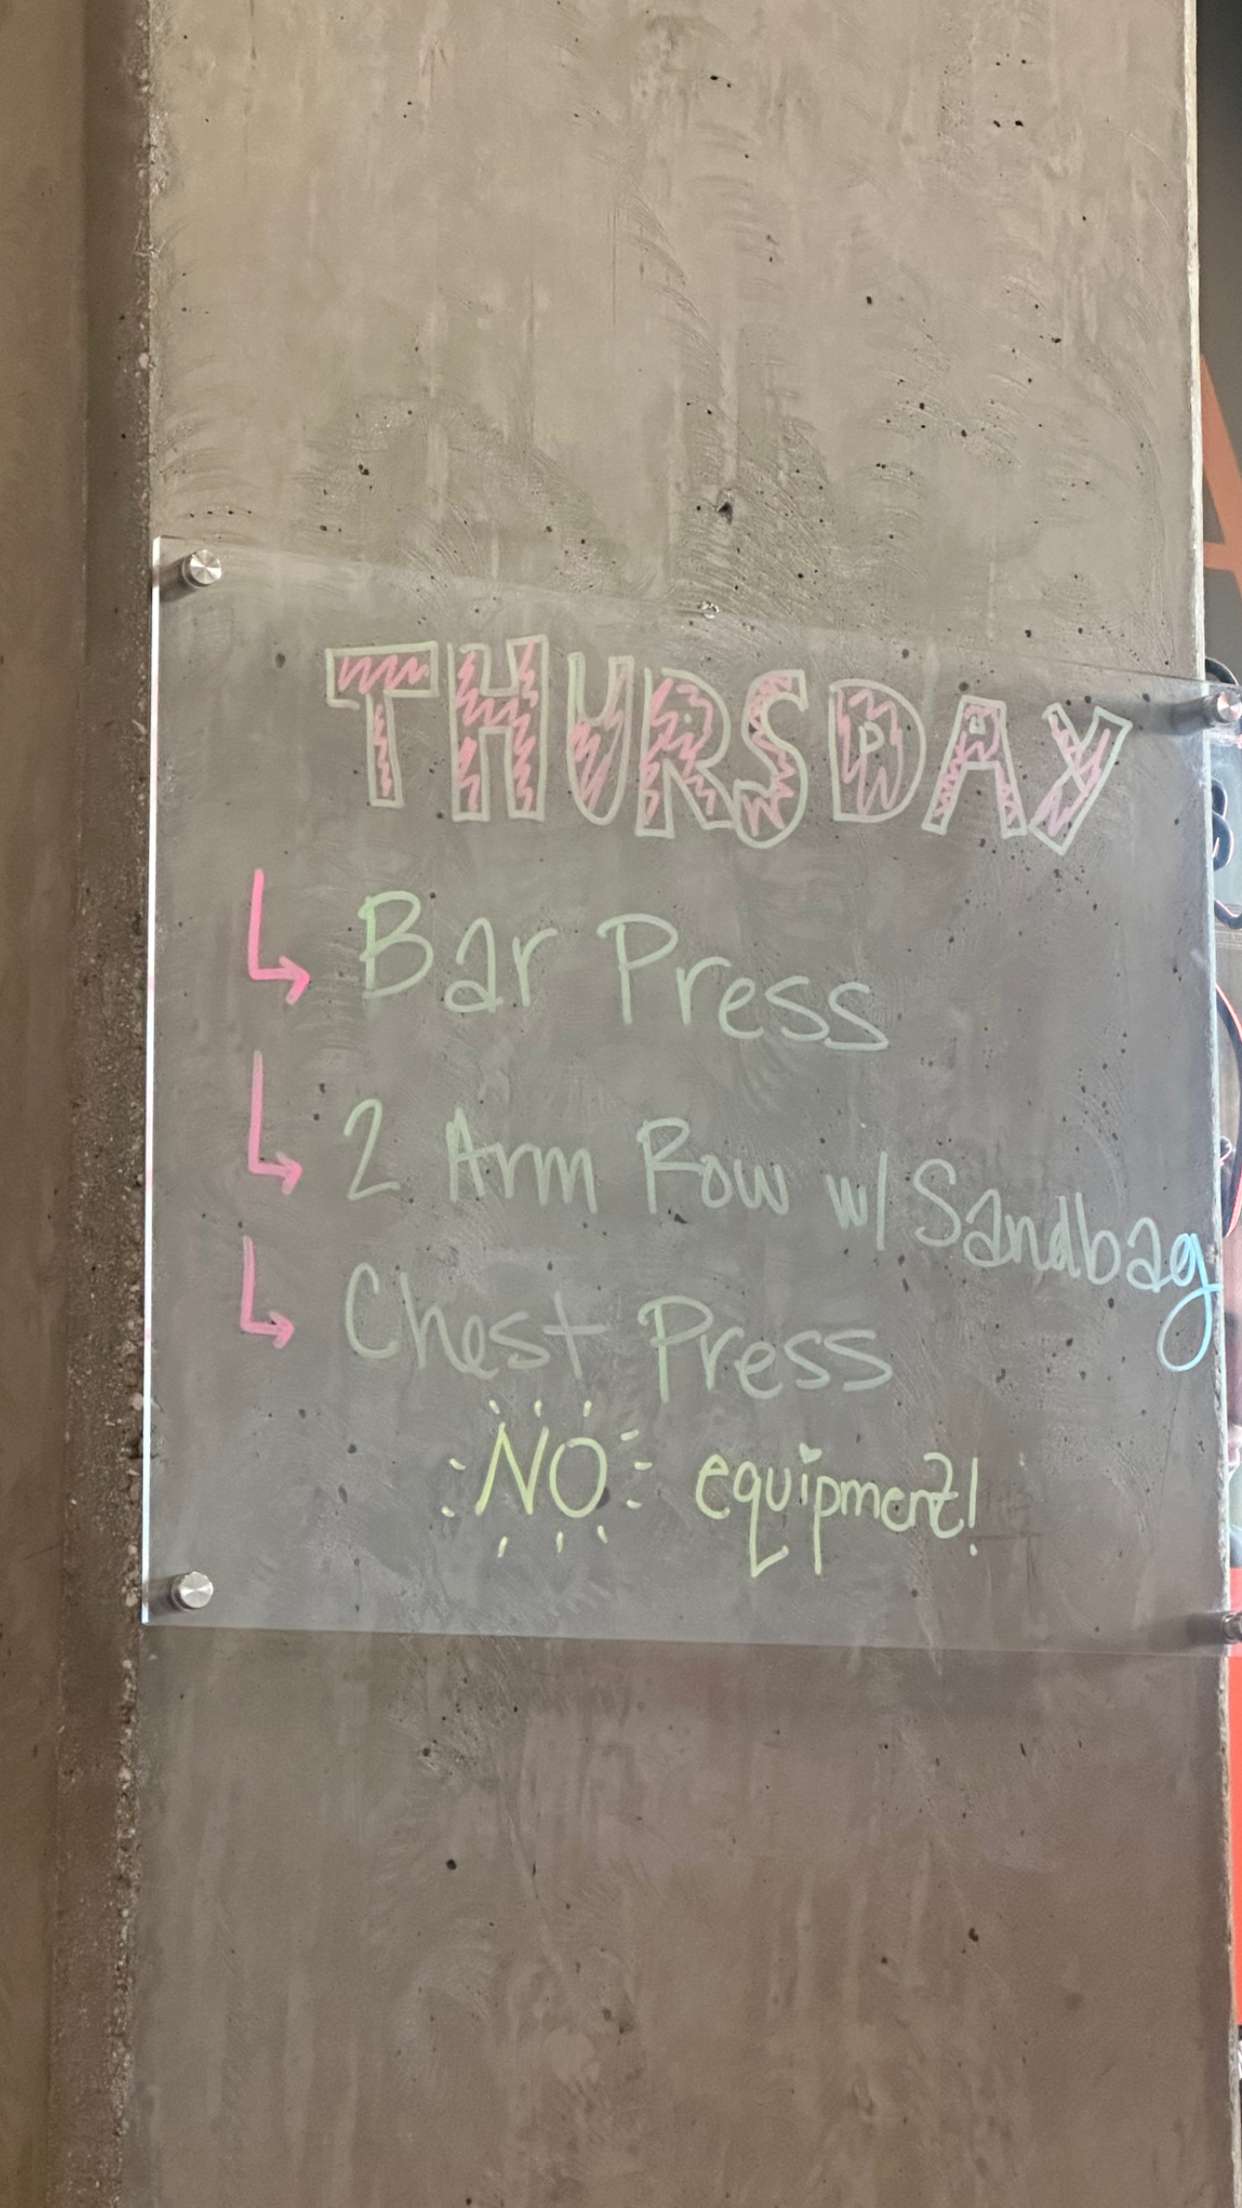 THURSDAY
↳ Bar Press
↳ 2 Arm Row w/ Sandbag
↳ Chest Press
NO equipment!